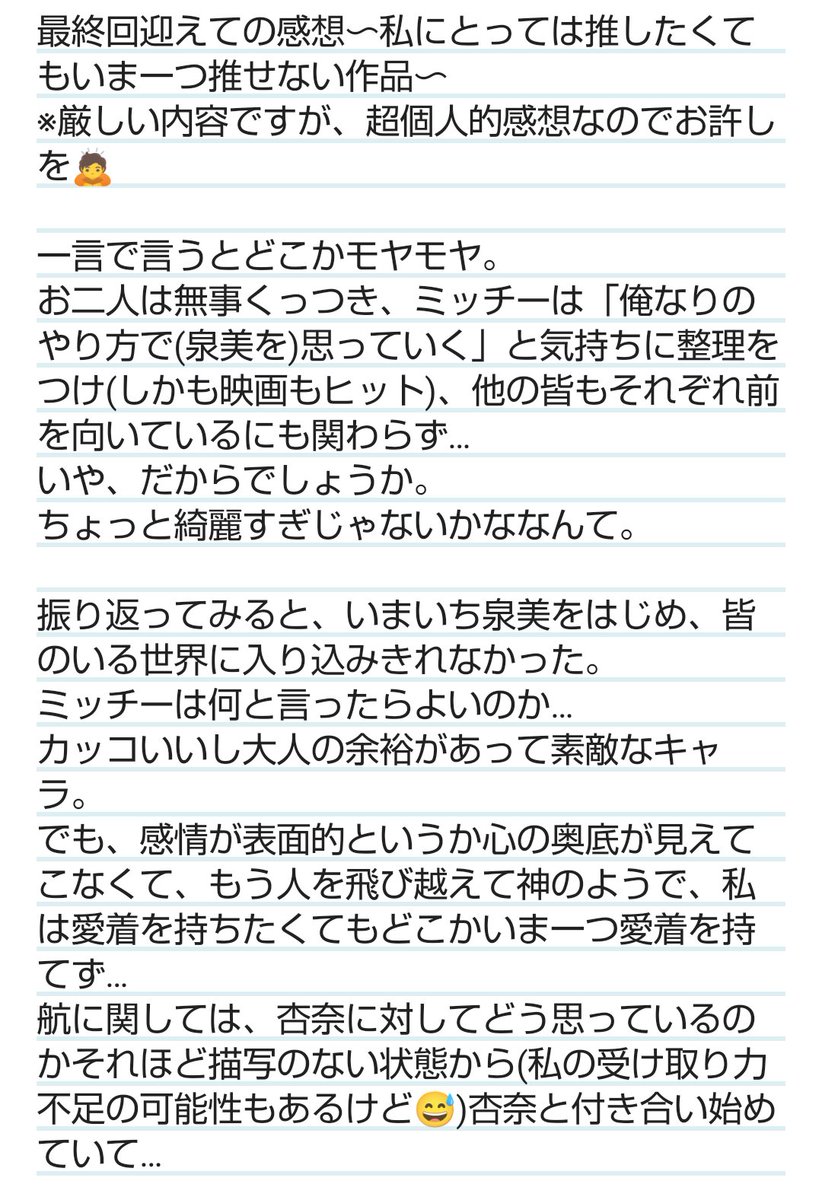 最終回迎えての感想〜私にとっては推したくて
もいま一つ推せない作品〜
※厳しい内容ですが、超個人的感想なのでお許し
を🙇
一言で言うとどこかモヤモヤ。
お二人は無事くっつき、ミッチーは「俺なりの
やり方で(泉美を)思っていく」と気持ちに整理を
つけ(しかも映画もヒット)、他の皆もそれぞれ前
を向いているにも関わらず...
いや、だからでしょうか。
ちょっと綺麗すぎじゃないかななんて。
振り返ってみると、いまいち泉美をはじめ、皆
のいる世界に入り込みきれなかった。
ミッチーは何と言ったらよいのか...
カッコいいし大人の余裕があって素敵なキャ
ラ。
でも、感情が表面的というか心の奥底が見えて
こなくて、もう人を飛び越えて神のようで、私
は愛着を持ちたくてもどこかいま一つ愛着を持
てず...
航に関しては、杏奈に対してどう思っているの
かそれほど描写のない状態から(私の受け取り力
不足の可能性もあるけど😅)杏奈と付き合い始め
ていて...